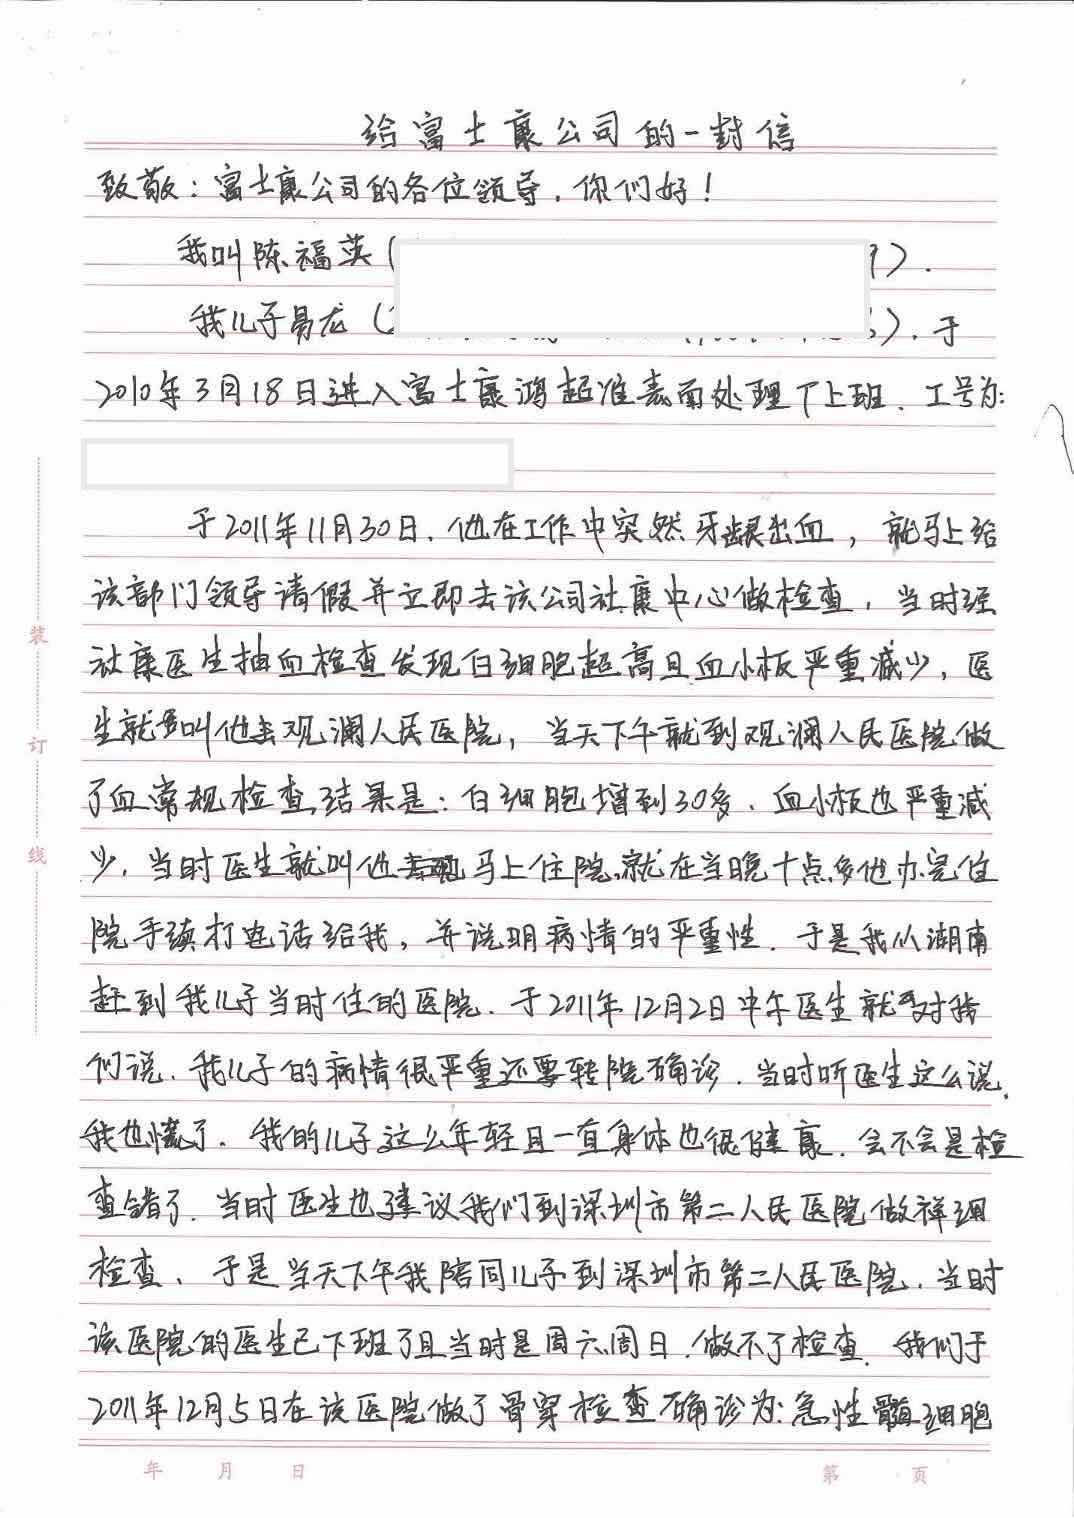 给富士康公司的一封信
致敬：富士康公司的各位领导，你们好！
我叫陈福英（ ）.
我儿子易龙（ ）.于
2010年3月18日进入富士康鸿超准表面处理厂上班.工号为:
于2011年11月30日.他在工作中突然牙龈出血，就马上给
该部门领导请假并立即去该公司社康中心做检查，当时经
社康医生抽血检查发现白细胞超高且血小板严重减少，医
生就叫他去观澜人民医院，当天下午就到观澜人民医院做
了血常规检查,结果是：白细胞增到30多.血小板也严重减
少，当时医生就叫他马上住院,就在当晚十点多他办完住
院手续打电话给我，并说明病情的严重性.于是我从湖南
赶到我儿子当时住的医院.于2011年12月2日中午医生就对我
们说.我儿子的病情很严重还要转院确诊.当时听医生这么说.
我也慌了.我的儿子这么年轻且一直身体也很健康.会不会是检
查错了.当时医生也建议我们到深圳市第二人民医院做祥细
检查、于是当天下午我陪同儿子到深圳市第二人民医院.当时
该医院的医生已下班了且当时是周六周日.做不了检查.我们于
2011年12月5日在该医院做了骨穿检查确诊为:急性髓细胞
装
订
线
年 月 日 第 页